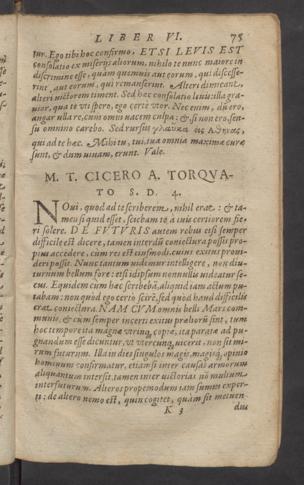 LIBER VI. 75
tur. Ego tibi hoc confirmo, ETSI LEVIS EST
consolatio ex miserijs aliorum, nihilo te nunc maiore in
discrimine esse, quàm quemuis aut eorum, qui discesse-
rint, aut eorum, qui remanserint. Alteri dimicant,
alteri victorem timent. Sed hæc consolatio leuis: illa gra-
uior, qua te vti spero, ego certè vtor. Nec enim, dū ero,
angar vlla re, cum omni vacem culpa: & si non ero, sen-
su omnino carebo. Sed rursus γλαῦκα εἰς Ἀθήνας,
qui ad te hæc. Mihi tu, tui, tua omnia maximæ curæ
sunt, & dum viuam, erunt. Vale.
M. T. CICERO A. TORQVA-
TO S. D. 4.
NOui, quod ad te scriberem, nihil erat: & ta-
men si quid esset, sciebam te à tuis certiorem fie-
ri solere. DE FVTVRIS autem rebus etsi semper
difficile est dicere, tamen interdū coniectura possis pro-
pius accedere, cum res est eiusmodi, cuius exitus proui-
deri possit. Nunc tantum videmur intelligere, non diu-
turnum bellum fore: etsi idipsum nonnullis videatur se-
cus. Equidem cum hæc scribebā, aliquid iam actum pu-
tabam: non quòd ego certò scirē, sed quòd haud difficilis
erat coniectura. NAM CVM omnis belli Mars com-
munis, & cum semper incerti exitus prœliorū sint, tum
hoc tempore ita magnæ vtrinque copiæ, ita paratæ ad pu-
gnandum esse dicuntur, vt vtercunque vicerit, non sit mi-
rum futurum. Illa in dies singulos magis magisque opinio
hominum confirmatur, etiamsi inter causas armorum
aliquantum intersit, tamen inter victorias nō multum
interfuturum. Alteros propemodum iam sumus exper-
ti: de altero nemo est, quin cogitet, quàm sit metuen-
K 3 dus